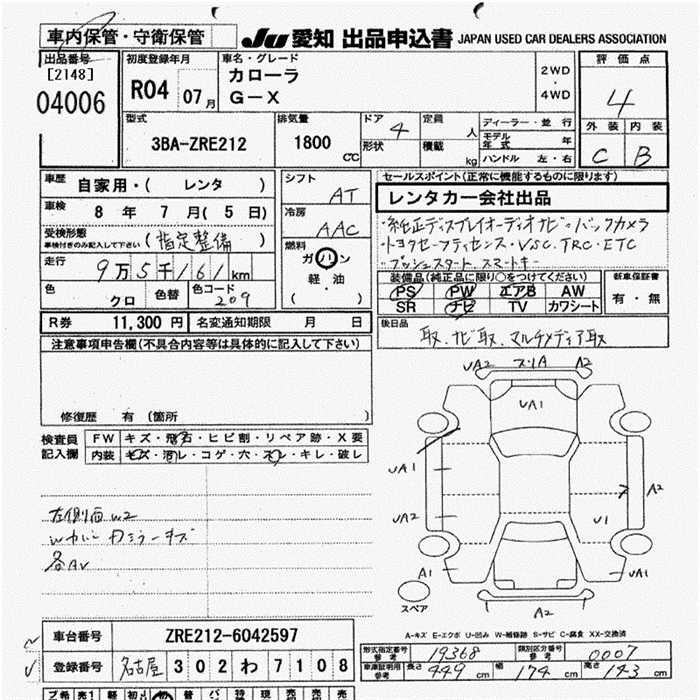 車内保管・守衛保管
JU 愛知 出品申込書 JAPAN USED CAR DEALERS ASSOCIATION
出品番号
[2148]
04006
初度登録年月
R04 07月
車名・グレード
カローラ
G-X
2WD
・
4WD
評価点
4
外装 内装
C B
型式
3BA-ZRE212
排気量
1800
cc
ドア 4
形状
定員 人
積載 kg
ディーラー・並行
モデル年式 年
ハンドル 左・右
車歴 自家用・( レンタ )
車検 8 年 7 月( 5 日)
受検形態
車検付きのみ記入して下さい
(指定整備)
走行
9万5千161km
色 クロ
色替
色コード 209
シフト AT
冷房 AAC
燃料
ガソリン
軽油
( ・ )
セールスポイント(正常に機能するものに限ります)
レンタカー会社出品
・純正ディスプレイオーディオナビ・バックカメラ
・トヨタセーフティセンス・VSC・TRC・ETC
・プッシュスタート・スマートキー
装備品(純正品に限り○をつけてください)
PS PW エアB AW
SR ナビ TV カワシート
新車保証書
有・無
R券 11,300 円
名変通知期限 月 日
後日品
取、ナビ取、マルチメディア取
注意事項申告欄(不具合内容等は具体的に記入して下さい)
修復歴 有 (箇所 )
検査員
記入欄
FW キズ・飛石・ヒビ割・リペア跡・X要
内装 キズ・汚レ・コゲ・穴・スレ・キレ・破レ
左側面W2
各AV
UA2 スリA A2
UA1
UA1
A2
UA2
U1
A1
UA1
スペア
A2
A-キズ E-エクボ U-凹み W-補修跡 S-サビ C-腐食 XX-交換済
車台番号 ZRE212-6042597
登録番号 名古屋 302 わ 7108
型式指定番号
参考
19368
類別区分番号
参考
0007
車庫証明用
参考
長さ 449 cm 幅 174 cm 高さ 143 cm